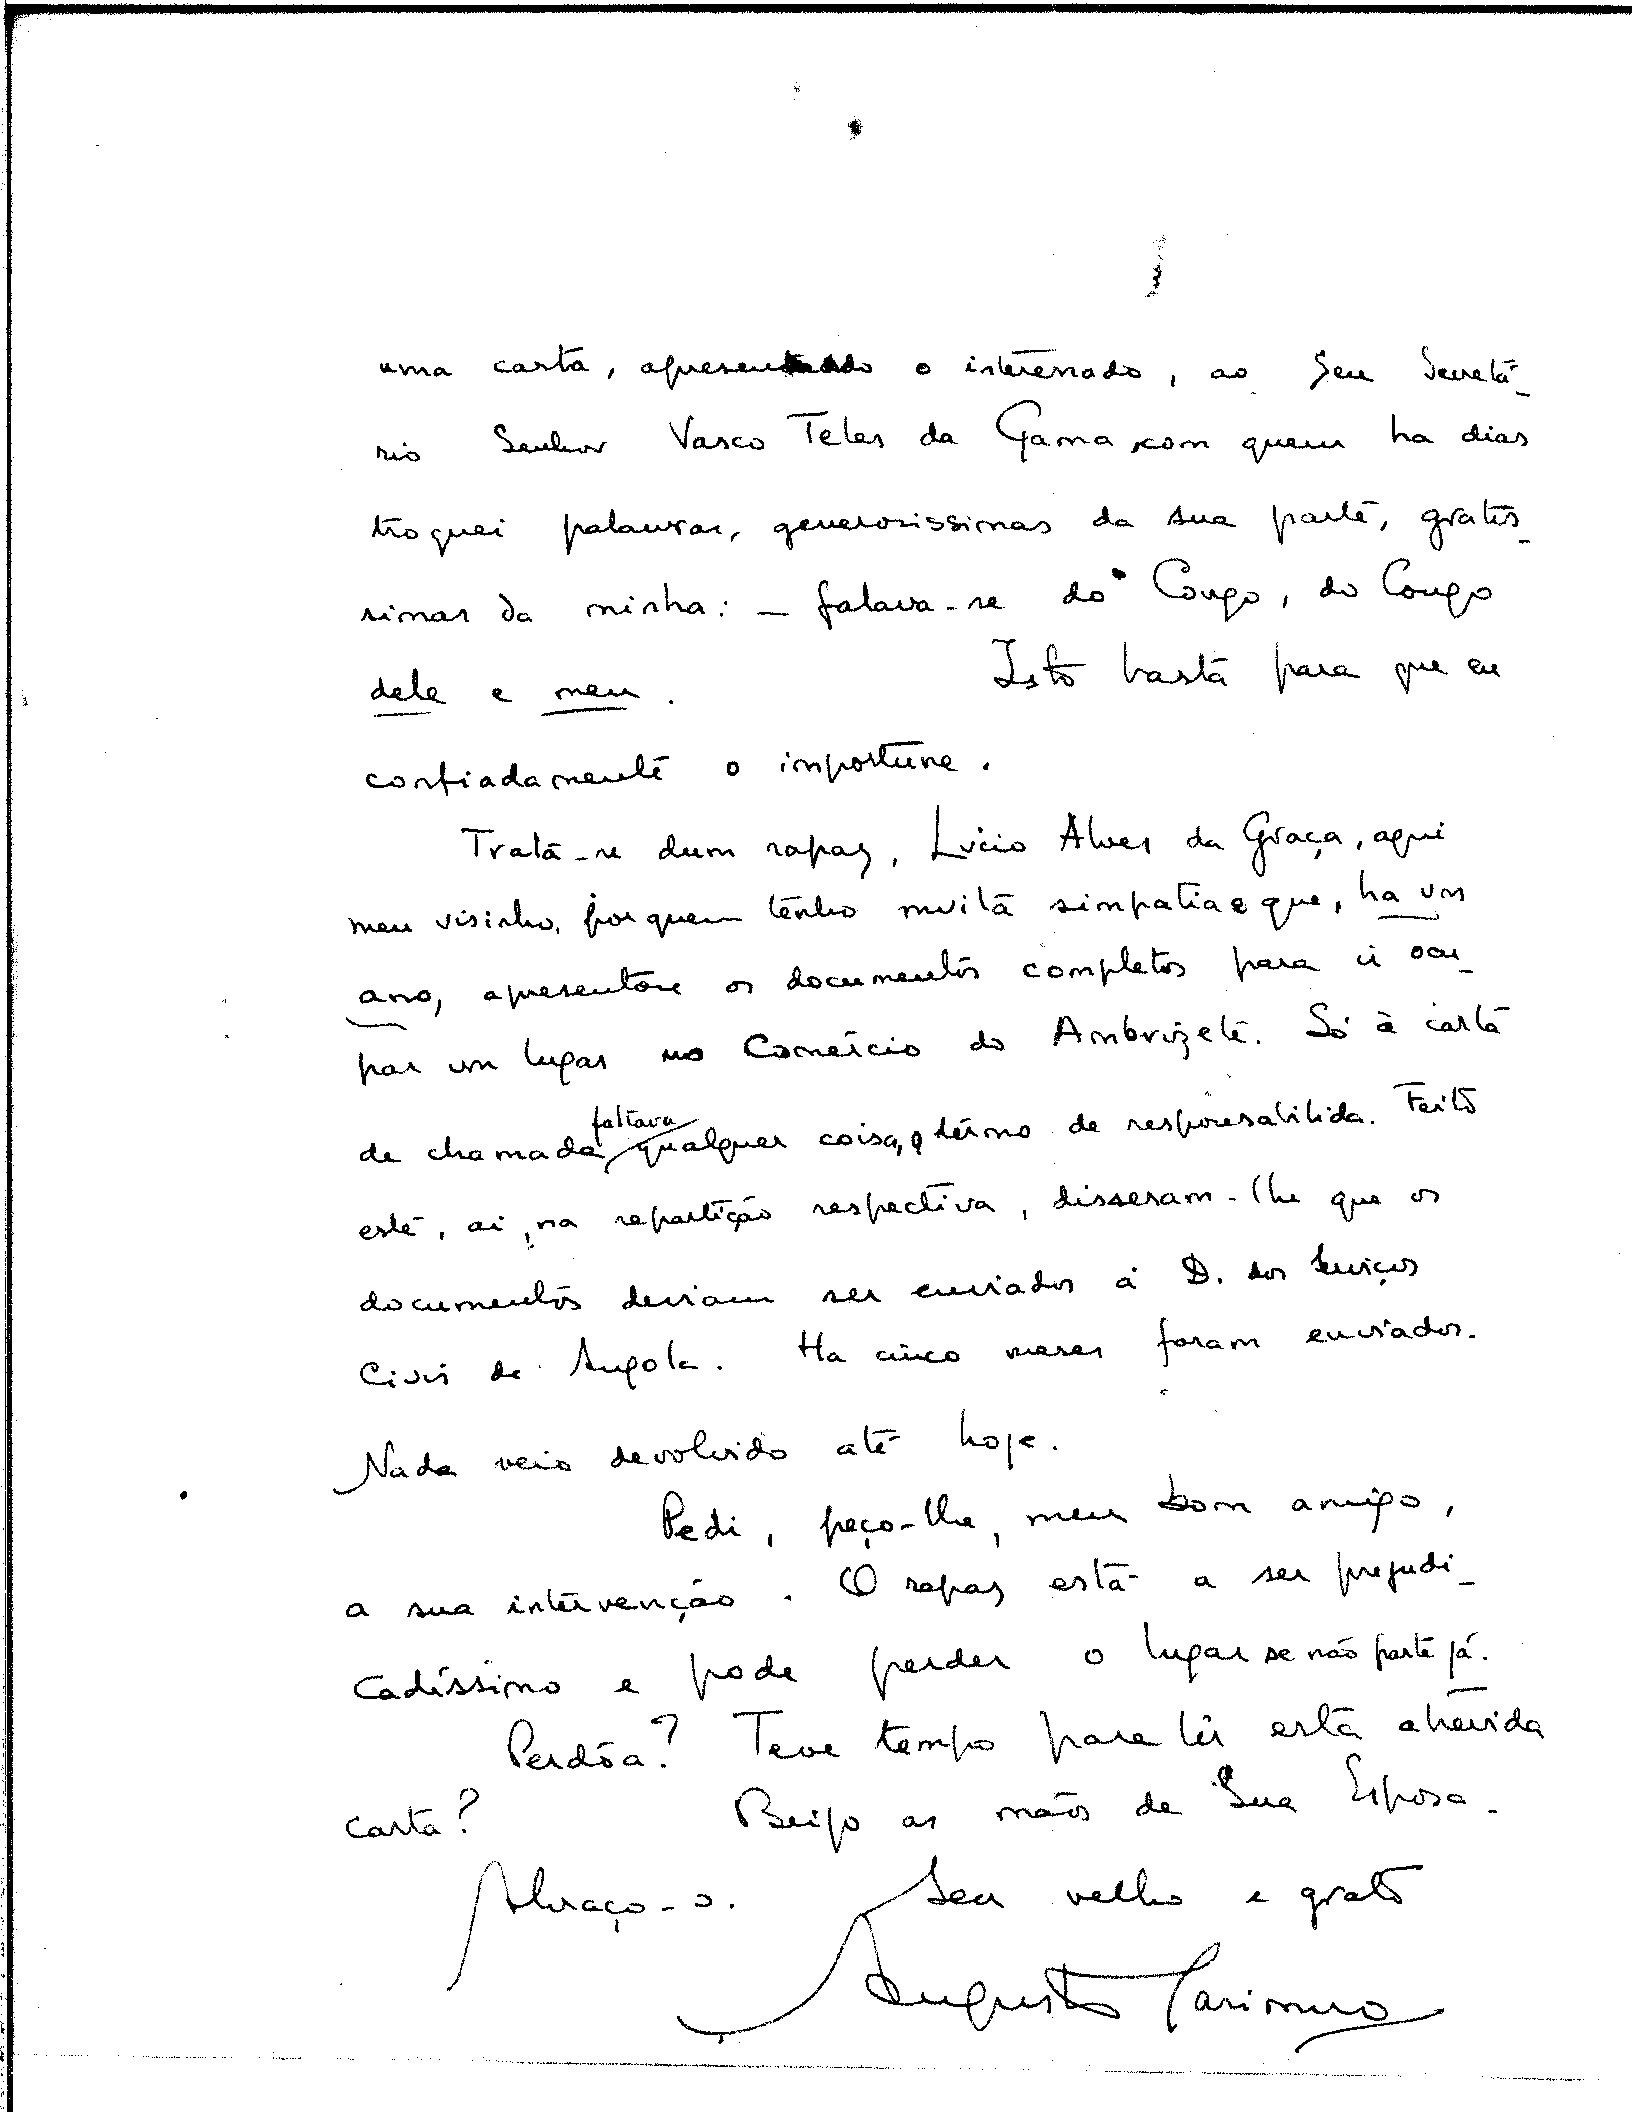 uma carta, apresentando o interessado, ao Seu Secretá-
rio Senhor Vasco Teles da Gama, com quem ha dias
troquei palavras, generosissimas da sua parte, gratis-
simas da minha: — falava-se do Congo, do Congo
dele e meu. Isto basta para que eu
confiadamente o importune.
Trata-se dum rapaz, Lúcio Alves da Graça, aqui
meu visinho, por quem tenho muita simpatia e que, ha um
ano, apresentou os documentos completos para ir ocu-
par um lugar no Comércio do Ambrizete. Só à carta
de chamada faltava qualquer coisa, o têrmo de responsabilida. Feito
este, ai, na repartição respectiva, disseram-lhe que os
documentos deviam ser enviados á D. dos Serviços
Civis de Angola. Ha cinco meses foram enviados.
Nada veio devolvido até hoje.
Pedi, peço-lhe, meu bom amigo,
a sua intervenção. O rapaz está a ser prejudi-
cadíssimo e pode perder o lugar se não parte já.
Perdôa? Teve tempo para lêr esta atrevida
carta? Beijo as mãos de Sua Esposa.
Abraço-o. Seu velho e grato
Augusto Casimiro